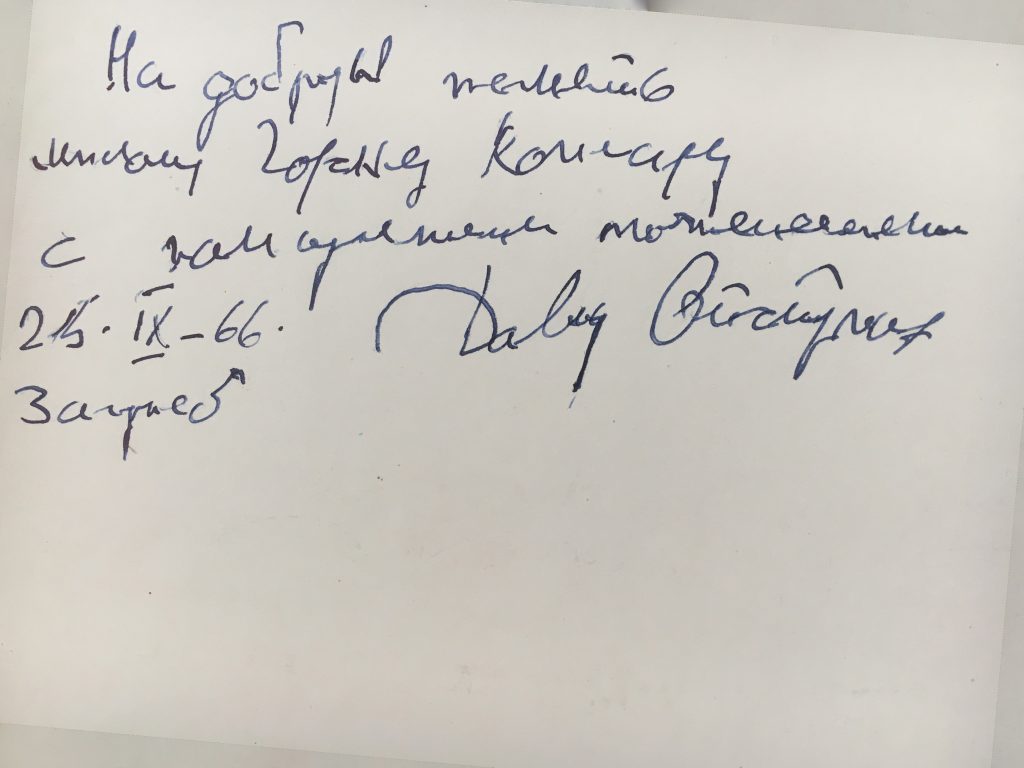 На добрую память
милому Горану Кончару
с наилучшими пожеланиями
25. IX – 66. Давид Ойстрах
Загреб